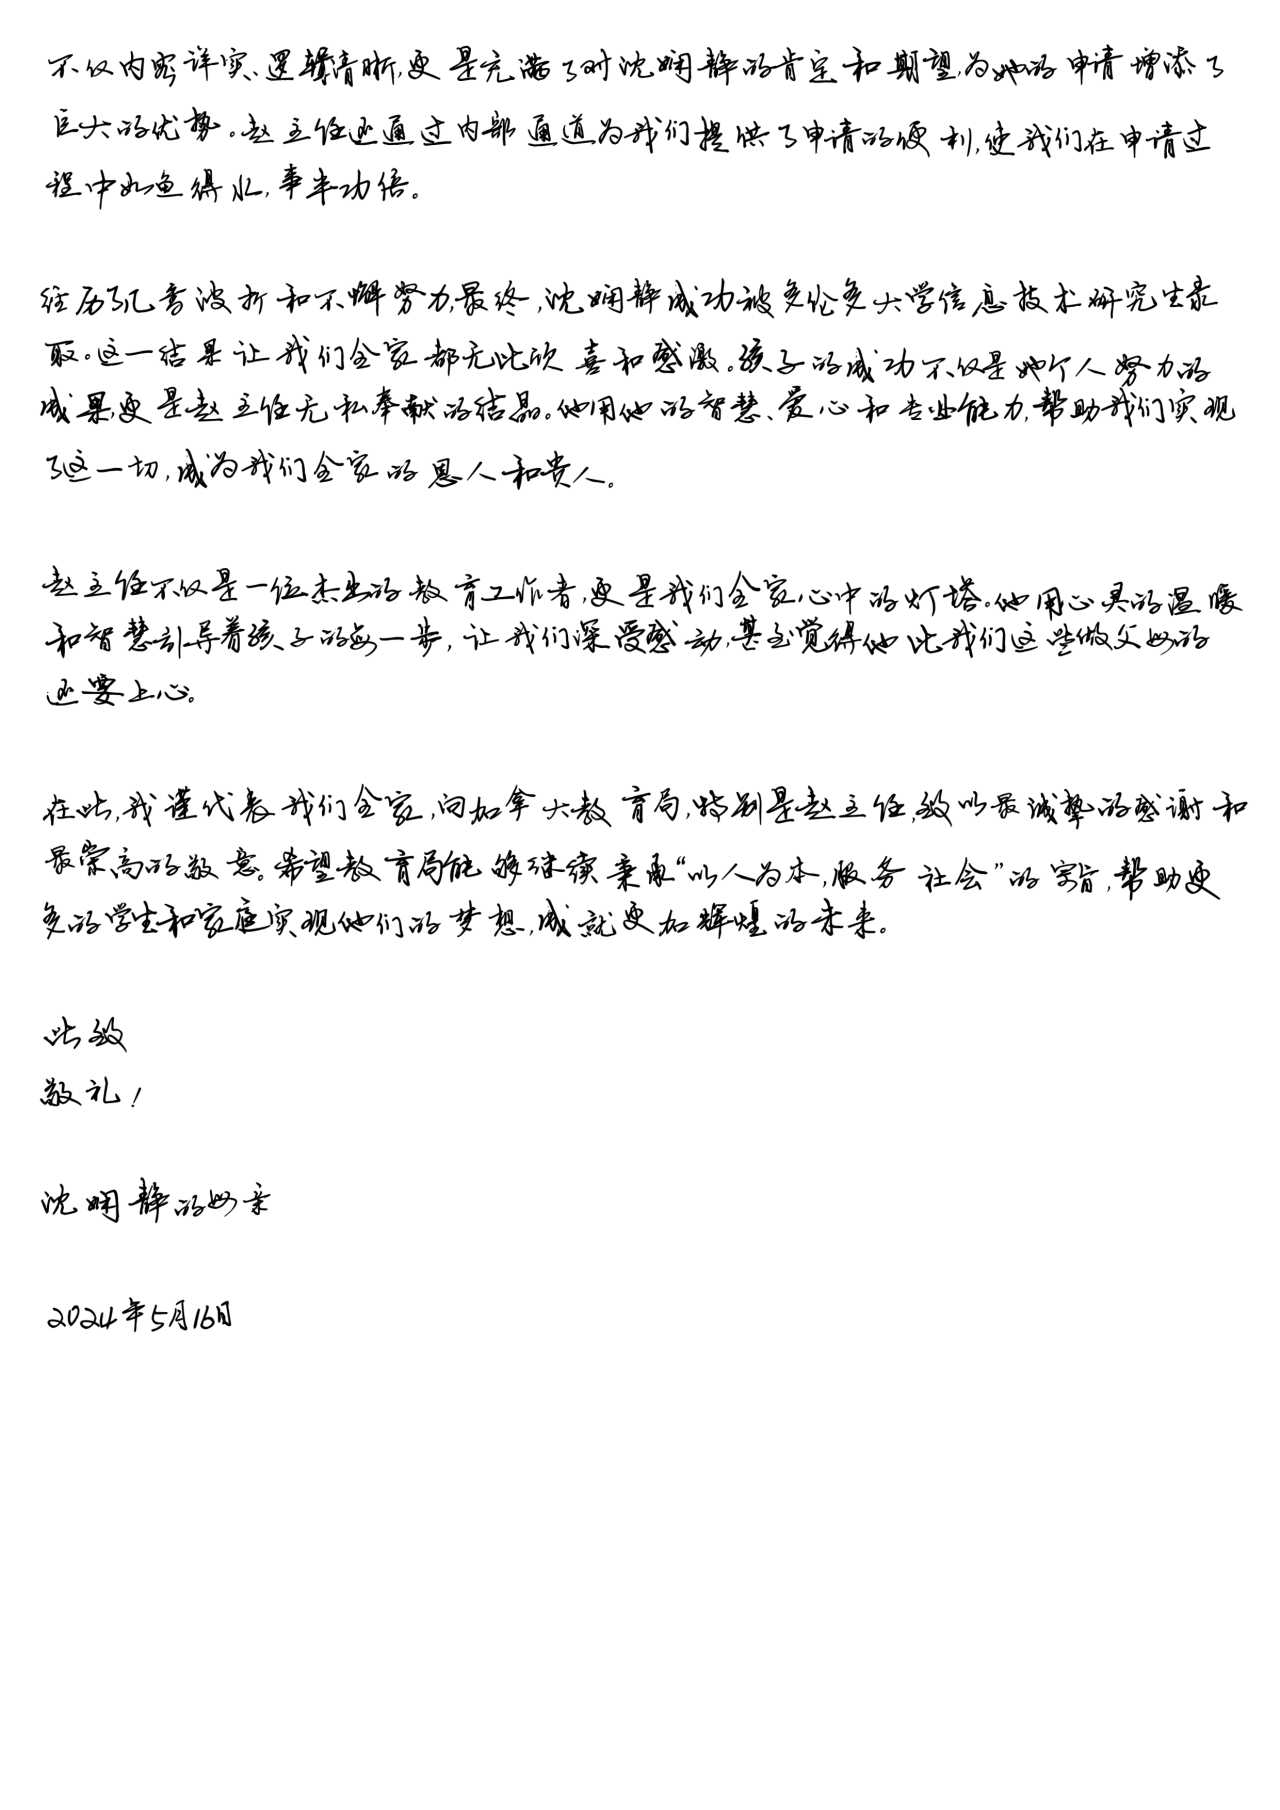 不仅内容详实、逻辑清晰,更是充满了对沈娴静的肯定和期望,为她的申请增添了
巨大的优势。赵主任还通过内部通道为我们提供了申请的便利,使我们在申请过
程中如鱼得水,事半功倍。
经历了几番波折和不懈努力,最终,沈娴静成功被多伦多大学信息技术研究生录
取。这一结果让我们全家都无比欣喜和感激。孩子的成功不仅是她个人努力的
成果,更是赵主任无私奉献的结晶。他用他的智慧、爱心和专业能力,帮助我们实现
了这一切,成为我们全家的恩人和贵人。
赵主任不仅是一位杰出的教育工作者,更是我们全家心中的灯塔。他用心灵的温暖
和智慧引导着孩子的每一步,让我们深受感动,甚至觉得他比我们这些做父母的
还要上心。
在此,我谨代表我们全家,向加拿大教育局,特别是赵主任,致以最诚挚的感谢和
最崇高的敬意。希望教育局能够继续秉承“以人为本,服务社会”的宗旨,帮助更
多的学生和家庭实现他们的梦想,成就更加辉煌的未来。
此致
敬礼!
沈娴静的母亲
2024年5月16日